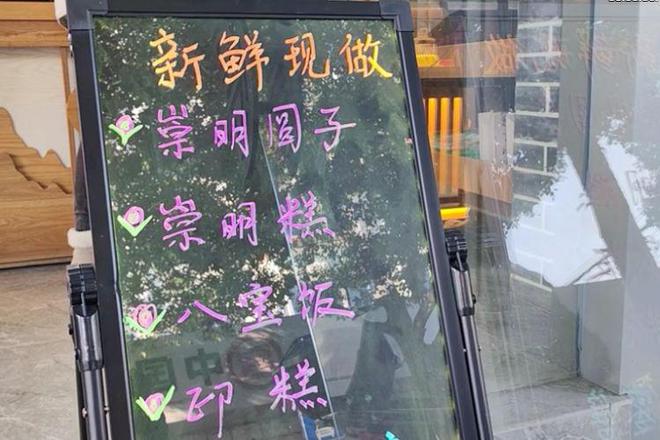 新鲜现做
崇明圆子
崇明糕
八宝饭
印糕